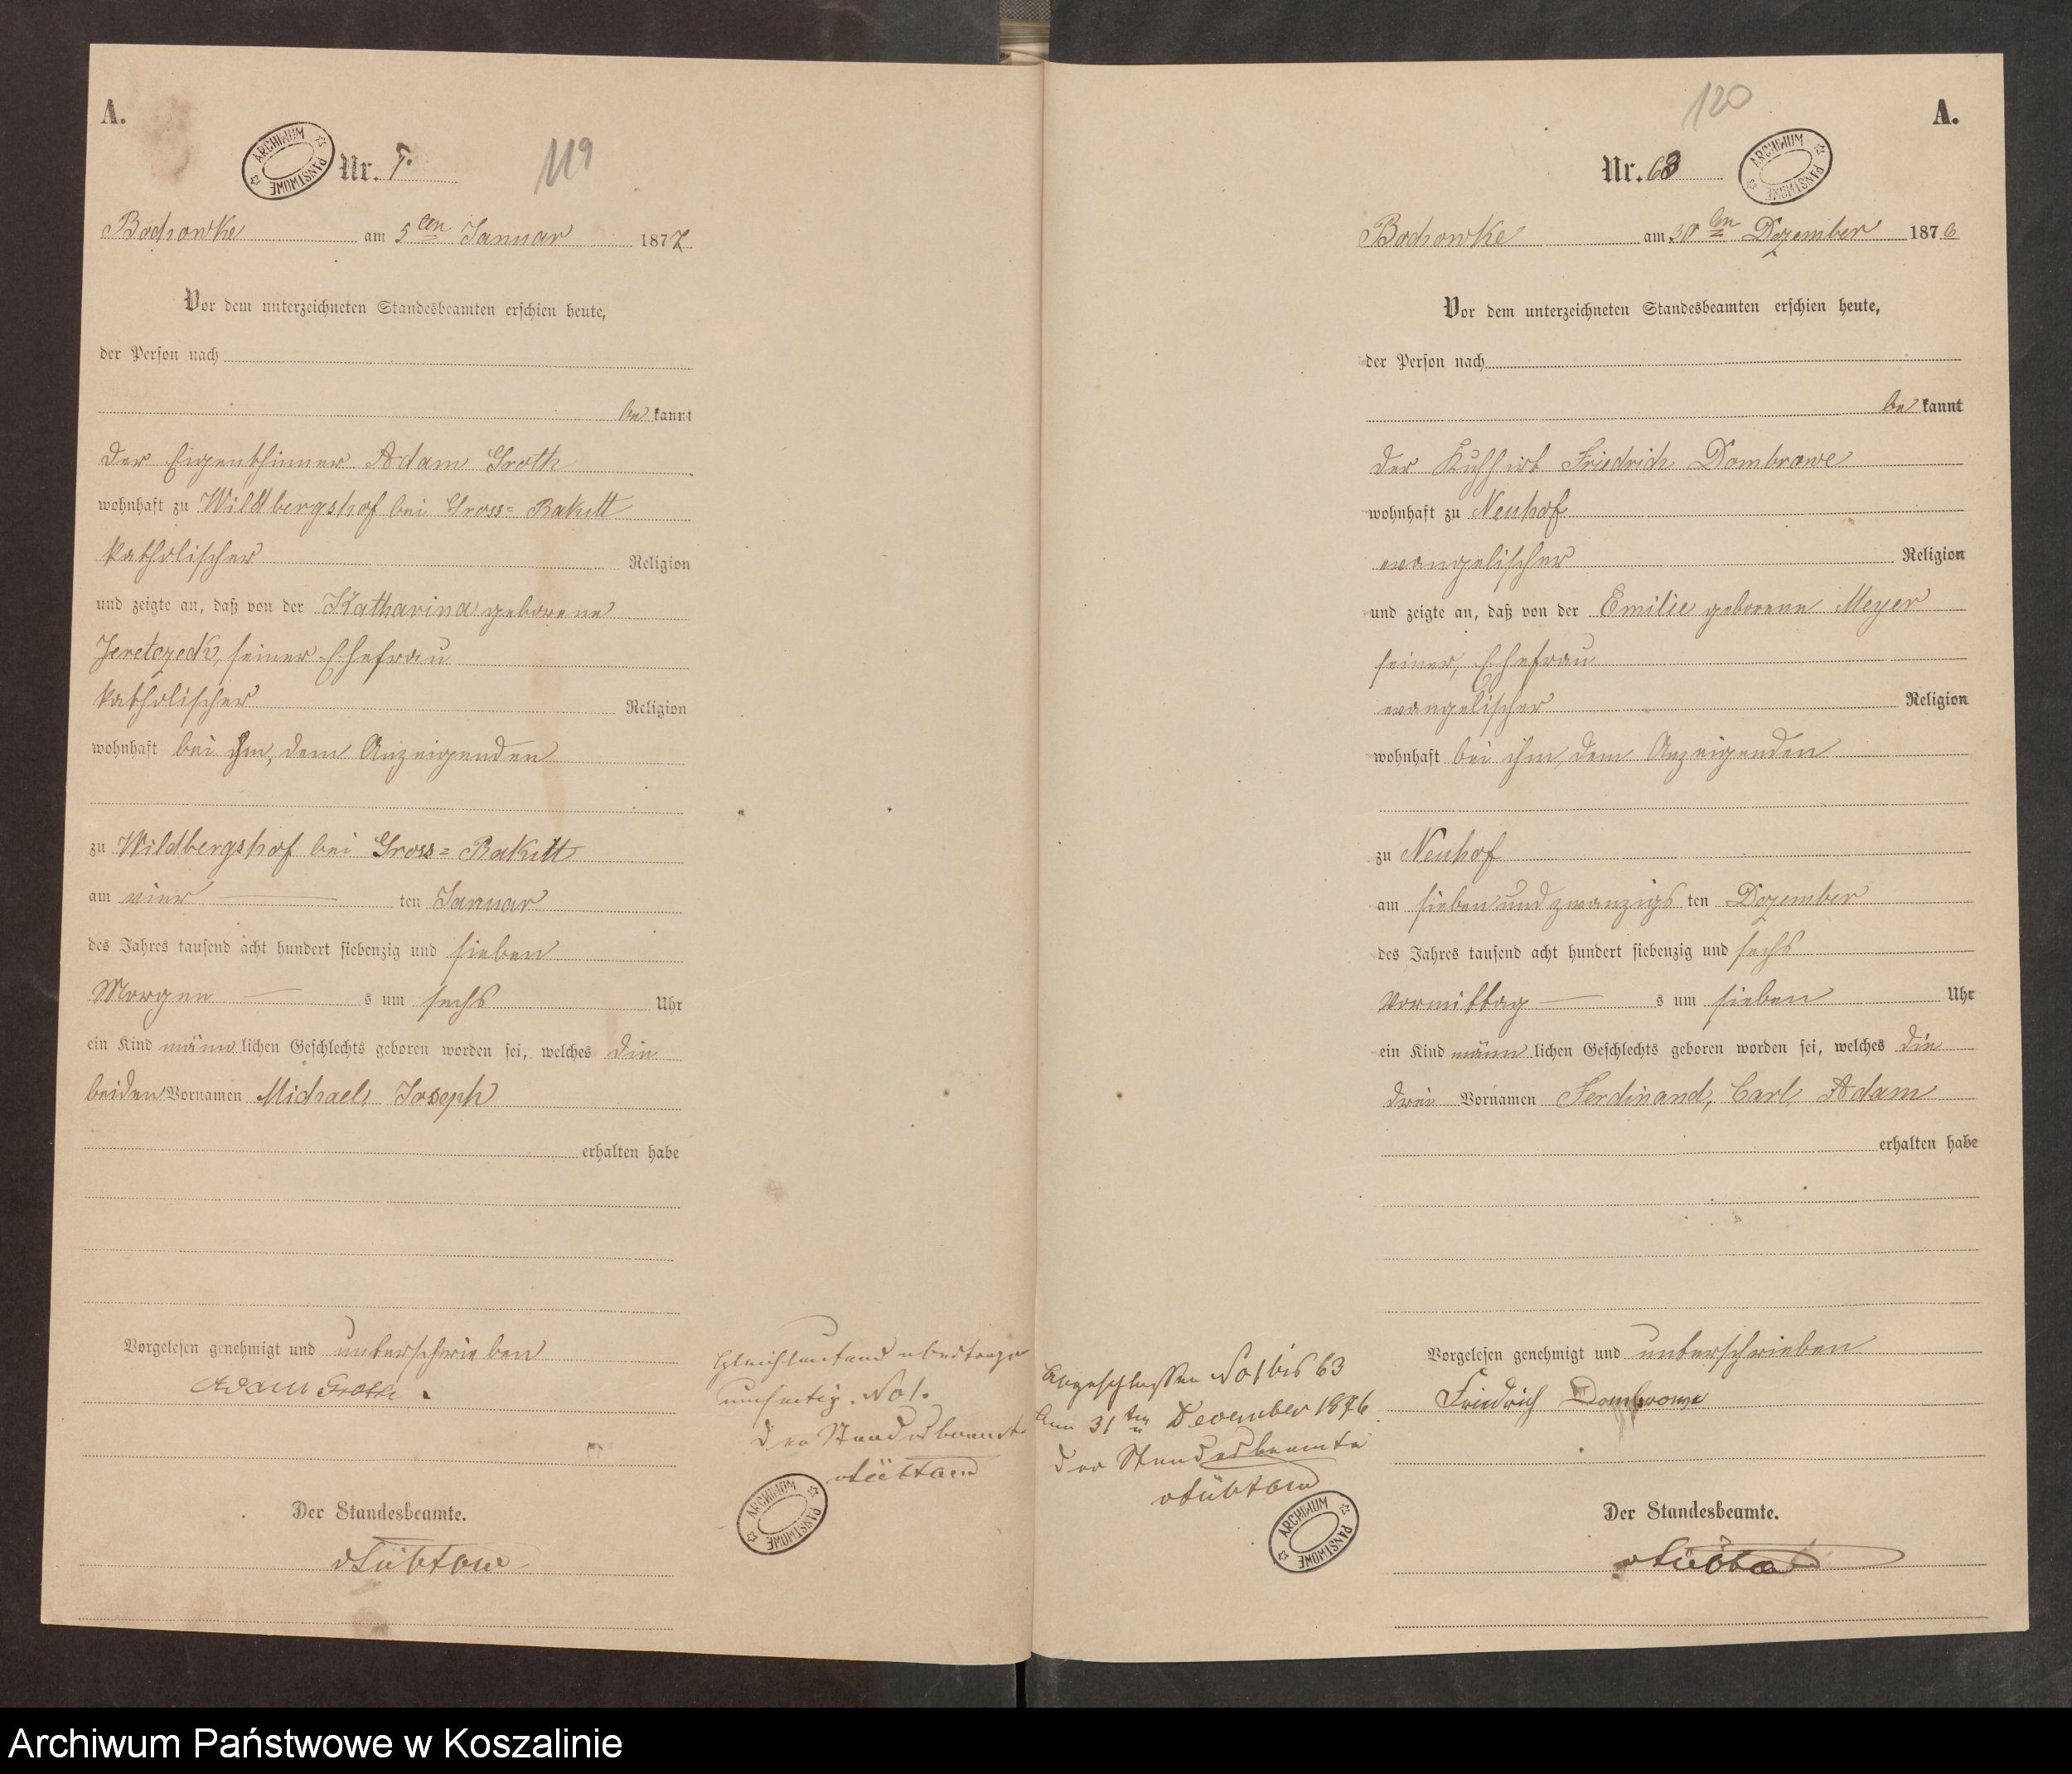 A.
ARCHIWUM PAŃSTWOWE
Nr.
119
Bochowke am 5ten Januar 1877
Vor dem unterzeichneten Standesbeamten erschien heute,
der Person nach
be kannt
der Eigenthümer Adam Groth
wohnhaft zu Wildbergshof bei Gross-Rakitt
katholischer Religion
und zeigte an, daß von der Katharina geborene
Jeretczeck, seiner Ehefrau
katholischer Religion
wohnhaft bei ihm, dem Anzeigenden
zu Wildbergshof bei Gross-Rakitt
am vier ten Januar
des Jahres tausend acht hundert siebenzig und sieben
Morgen s um sechs Uhr
ein Kind männ lichen Geschlechts geboren worden sei, welches die
beiden Vornamen Michael, Joseph
erhalten habe
Vorgelesen genehmigt und unterschrieben
Adam Groth.
Der Standesbeamte.
vStübtow
No 1.
Der Standesbeamte
vStübtow
ARCHIWUM PAŃSTWOWE
120
A.
Nr. 63
ARCHIWUM PAŃSTWOWE
Bochowke am 30ten Dezember 1876
Vor dem unterzeichneten Standesbeamten erschien heute,
der Person nach
be kannt
der Kuhhirt Friedrich Dombrowe
wohnhaft zu Neuhof
evangelischer Religion
und zeigte an, daß von der Emilie geborene Meyer
seiner, Ehefrau
evangelischer Religion
wohnhaft bei ihm, dem Anzeigenden
zu Neuhof
am sieben und zwanzigs ten Dezember
des Jahres tausend acht hundert siebenzig und sechs
Vormittag s um sieben Uhr
ein Kind männ lichen Geschlechts geboren worden sei, welches die
drei Vornamen Ferdinand, Carl, Adam
erhalten habe
Vorgelesen genehmigt und unterschrieben
Friedrich Dombrowe
Der Standesbeamte.
vStübtow
Abgeschlossen No 1 bis 63
Am 31ten December 1876.
Der Standesbeamte
vStübtow
ARCHIWUM PAŃSTWOWE
Archiwum Państwowe w Koszalinie